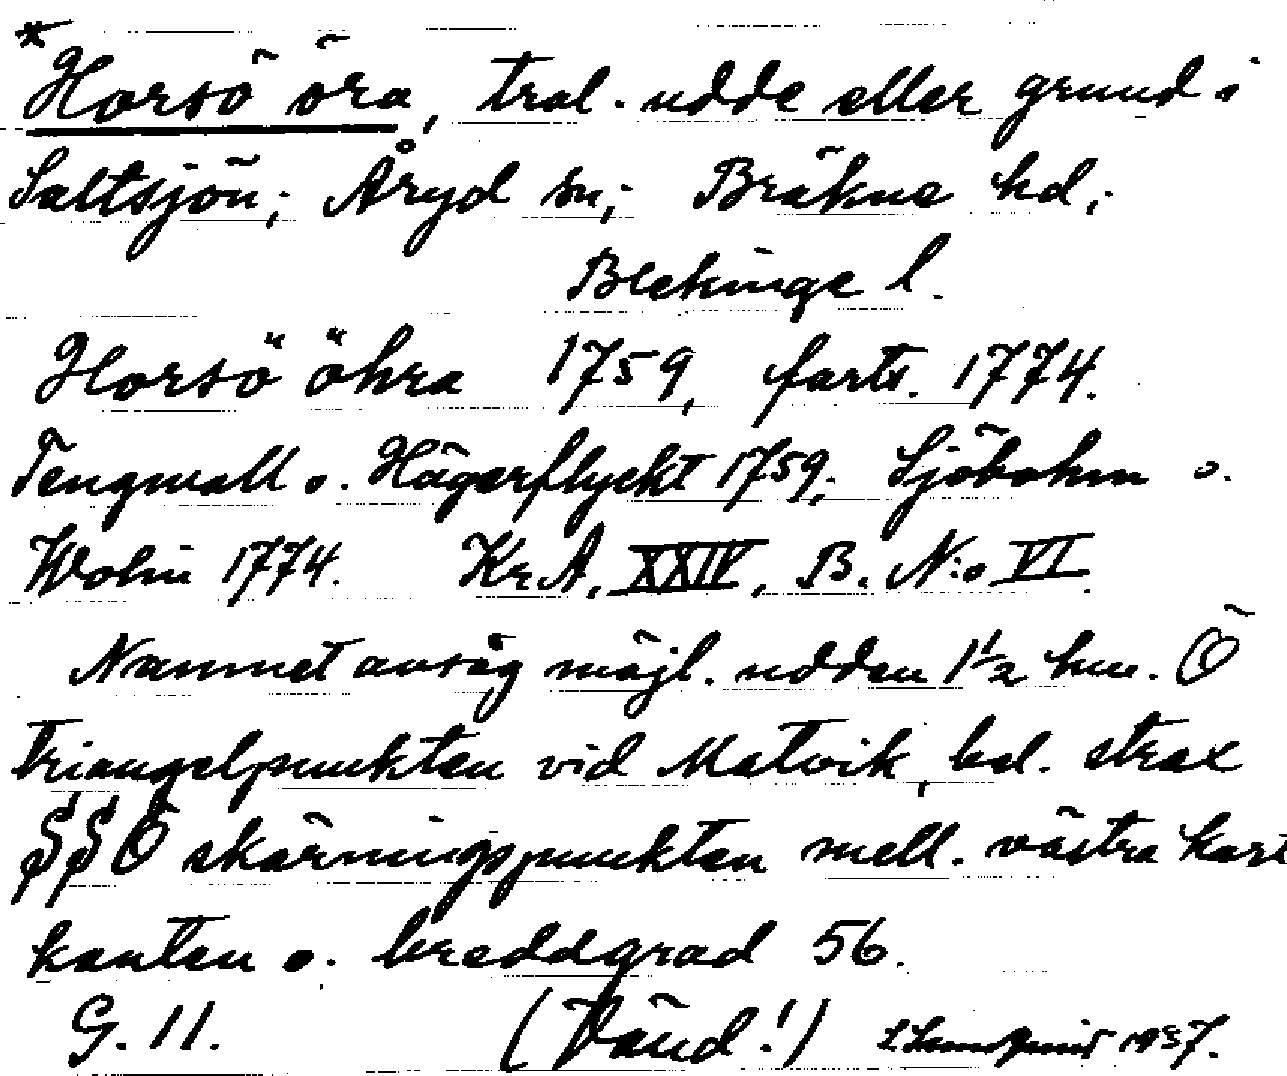 *Horsö öra, trol. udde eller grund i
Saltsjön; Åryd sn; Bräkne hd;
Blekinge l.
Horsö öhra 1759, farts. 1774.
Tengwall o. Hägerflycht 1759; Sjöbohm o.
Wohn 1774. Kr.A, XXIV, B. N:o VI.
Namnet avsåg möjl. udden 1½ km. Ö
triangelpunkten vid Matvik, bel. strax
SSÖ skärningspunkten mell. västra kart
kanten o. breddgrad 56.
G. 11. (Vänd!) 1937.